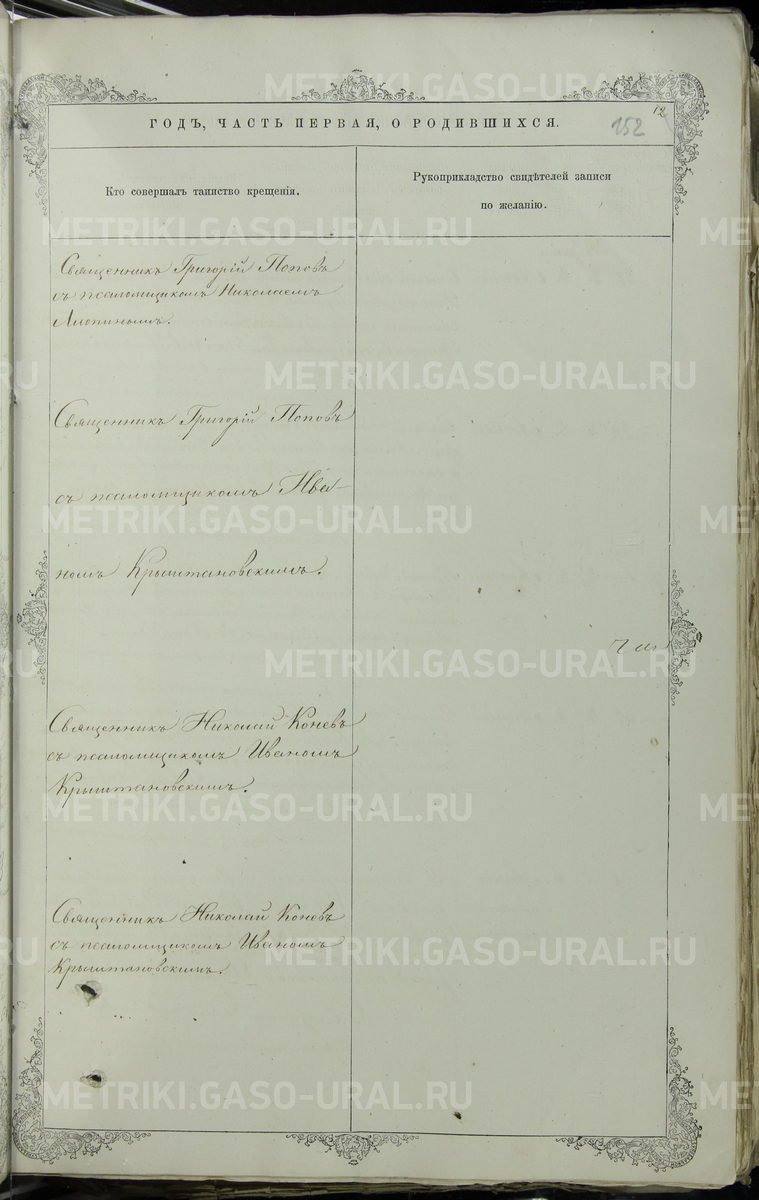 12
152
ГОДЪ, ЧАСТЬ ПЕРВАЯ, О РОДИВШИХСЯ.
Кто совершалъ таинство крещенія.
Рукоприкладство свидѣтелей записи
по желанію.
Священникъ Григорій Поповъ
съ псаломщикомъ Николаемъ
Ляпинымъ.
Священникъ Григорій Поповъ
съ псаломщикомъ Ива-
номъ Крыштановскимъ.
Священникъ Николай Коневъ
съ псаломщикомъ Иваномъ
Крыштановскимъ.
Священникъ Николай Коневъ
съ псаломщикомъ Иваномъ
Крыштановскимъ.
METRIKI.GASO-URAL.RU